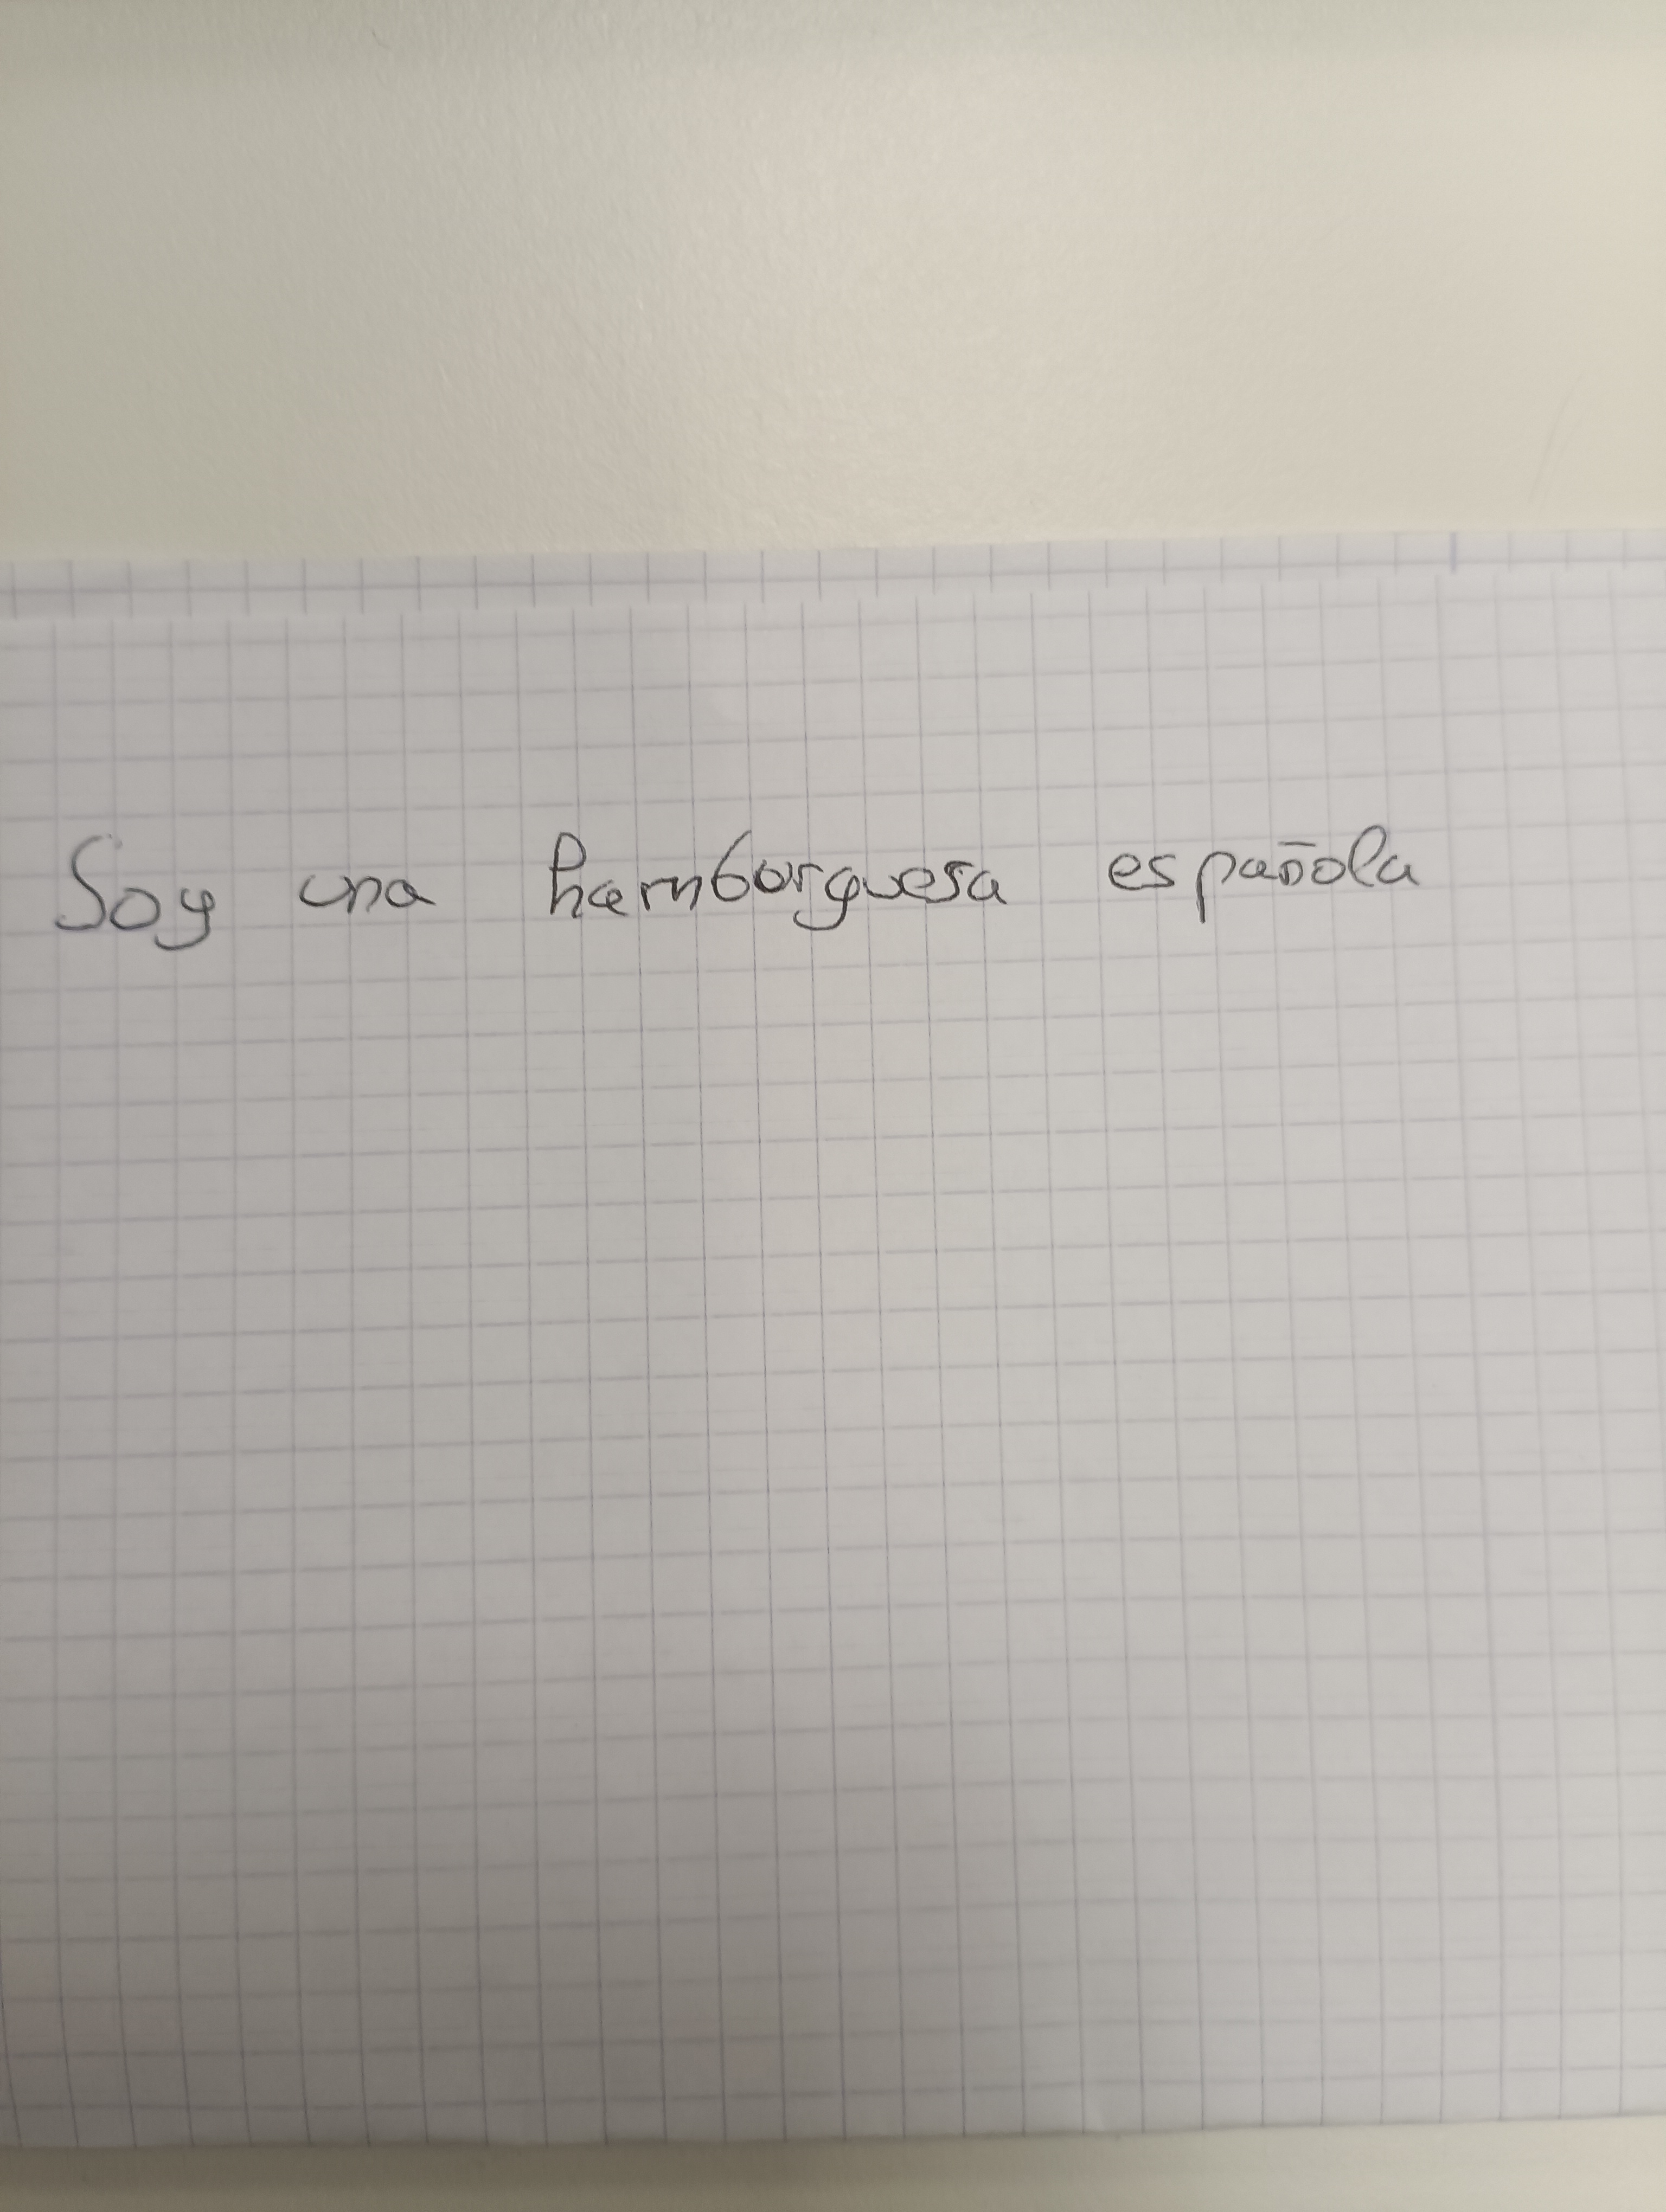 Soy una hamburguesa española